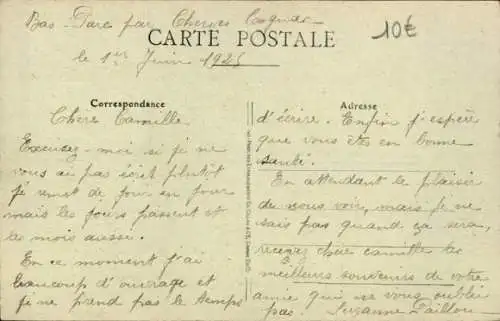 Bas Parc par Cherves Cognac
10€
CARTE POSTALE
le 1er Juin 1925
Correspondance
Adresse
Chère Camille
Excusez-moi si je ne
vous ai pas écrit plutôt
je remet de jour en jour
mais les jours passent et
les mois aussi.
En ce moment j'ai
beaucoup d'ouvrage et
je ne prend pas le temps
d'écrire. Enfin j'espère
que vous êtes en bonne
santé.
En attendant le plaisir
de vous voir, mais je ne
sais pas quand ça sera,
recevez chère camille les
meilleurs souvenirs de votre
amie qui ne vous oublie
pas. Suzanne